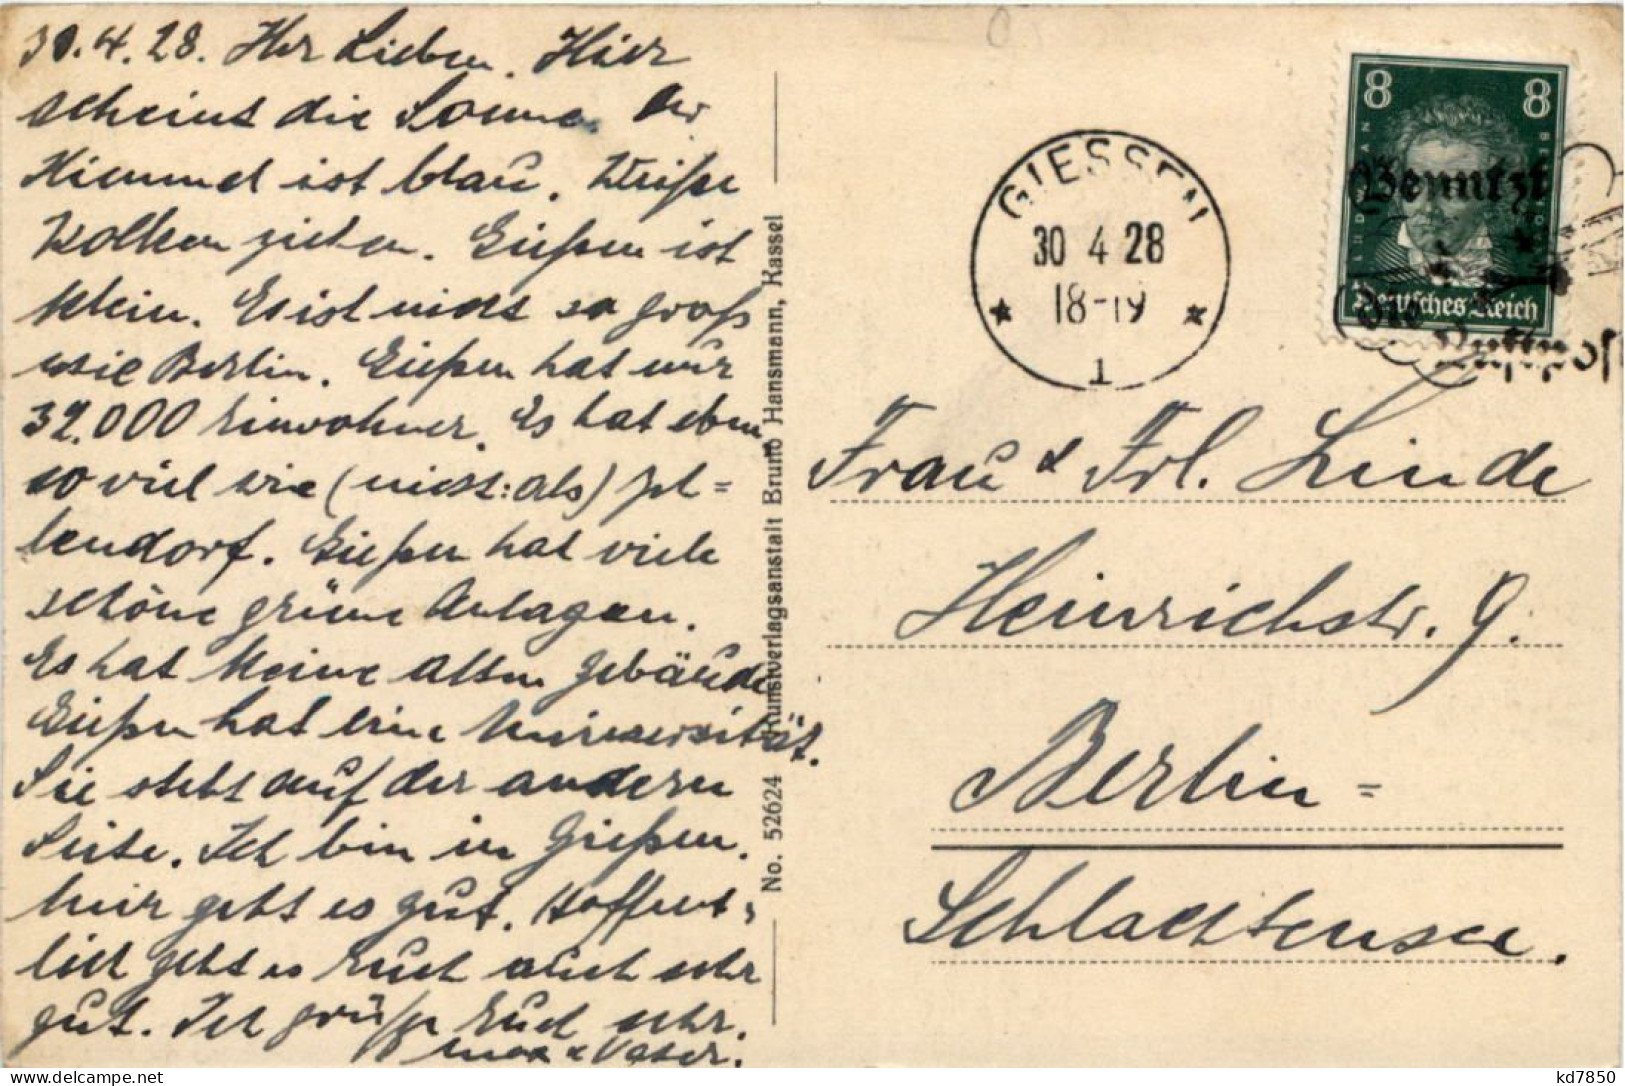 30.4.28. Ihr Lieben. Hier
scheint die Sonne. Der
Himmel ist blau. Weiße
Wolken ziehen. Gießen ist
klein. Es ist nicht so groß
wie Berlin. Gießen hat nur
32.000 Einwohner. Es hat eben
so viel wie (nicht: als) Zeh=
lendorf. Gießen hat viele
schöne grüne Anlagen.
Es hat keine alten Gebäude
Gießen hat eine Universität.
Sie steht auf der anderen
Seite. Ich bin in Gießen.
Mir geht es gut. Hoffent=
lich geht es Euch auch sehr
gut. Ich grüße Euch sehr.
Vater.
No. 52624 Kunstverlagsanstalt Bruno Hansmann, Kassel
GIESSEN
30 4 28
18-19
* *
1
8 8
Benutzt
Deutsches Reich
Frau & Frl. Linde
Heinrichstr. 9.
Berlin=
Schlachtensee.
kd7850